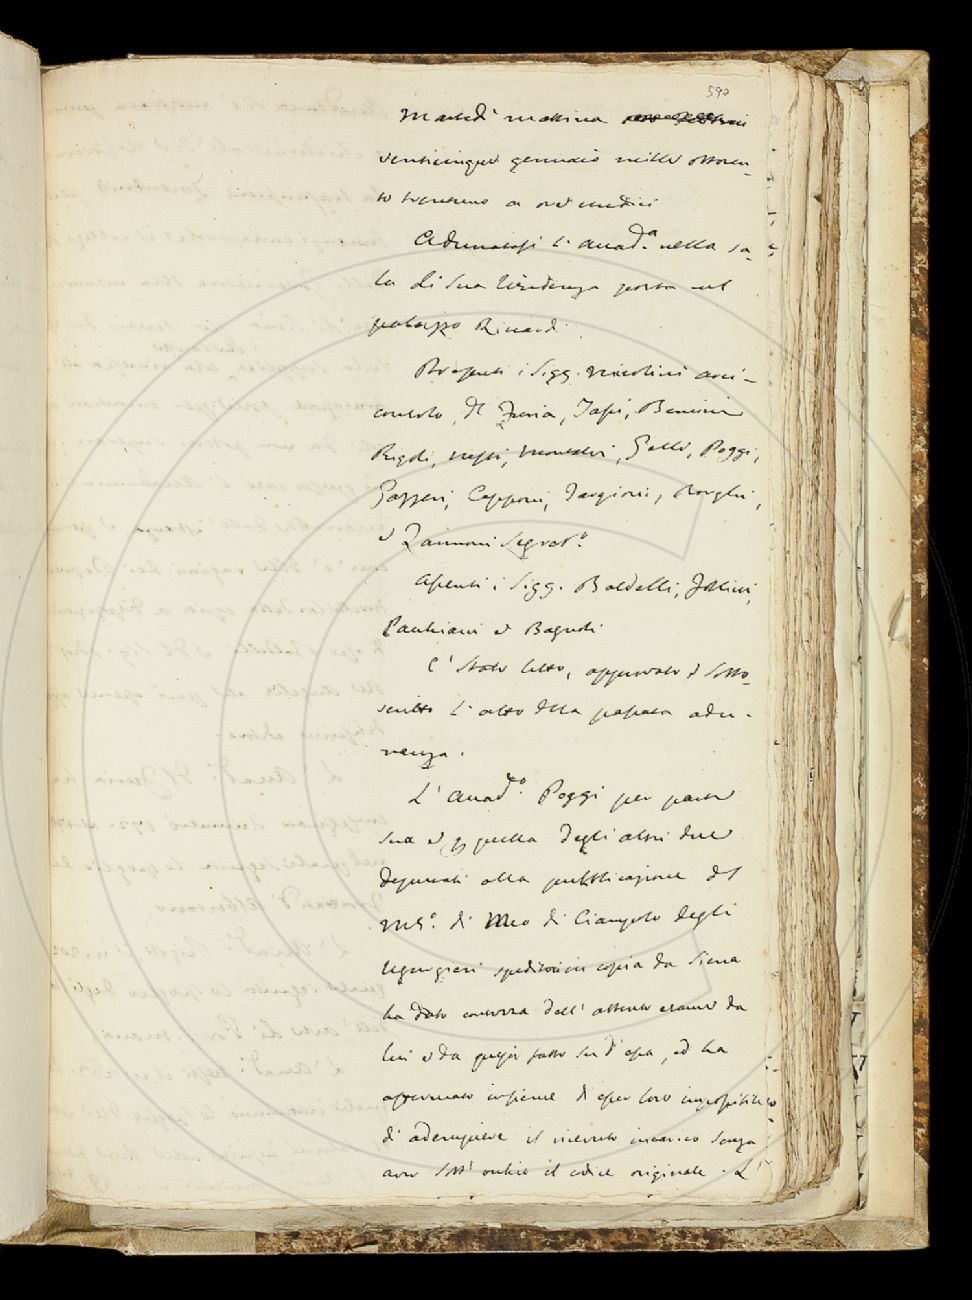 590
Martedì mattina
venticinque gennaio mille ottocen-
to trentuno a ore undici
Adunatasi l'Accad.a nella sa-
la di sua residenza posta nel
palazzo Riccardi
Presenti i Sigg. Niccolini arci-
consolo, Del Furia, Tassi, Bencini
Rigoli, Nesti, Montalvi, Gelli, Poggi,
Gazzeri, Capponi, Targioni, Borghi,
e Zannoni Segret.o
Assenti i Sigg. Baldelli, Follini,
Panchiani e Bagnoli
È stato letto, approvato e sotto-
scritto l'atto della passata adu-
nanza.
L'Accad.o Poggi per parte
sua e p quella degli altri due
deputati alla pubblicazione del
MS.o di Meo di Ciampolo degli
Ugurgieri spedito in copia da Siena
ha dato contezza dell'attento esame da
lui e da essi fatto su d'essa, ed ha
affermato insieme di esser loro impossibile
di adempiere il ricevuto incarico senza
aver sott'occhio il codice originale. L'